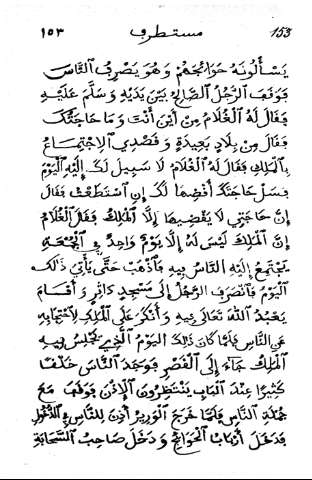 ١٥٣ مستطرف 153
يَسْأَلُونَهُ حَوَائِجَهُمْ وَهُوَ يَصْرِفُ النَّاسَ
فَوَقَفَ الرَّجُلُ الصَّالِحُ بَيْنَ يَدَيْهِ وَسَلَّمَ عَلَيْهِ
فَقَالَ لَهُ الْغُلَامُ مِنْ أَيْنَ أَنْتَ وَمَا حَاجَتُكَ
فَقَالَ مِنْ بِلَادٍ بَعِيدَةٍ وَقَصْدِي الِاجْتِمَاعُ
بِالْمَلِكِ فَقَالَ لَهُ الْغُلَامُ لَا سَبِيلَ لَكَ إِلَيْهِ الْيَوْمَ
فَسَلْ حَاجَتَكَ أَقْضِهَا لَكَ إِنِ اسْتَطَعْتُ فَقَالَ
إِنَّ حَاجَتِي لَا يَقْضِيهَا إِلَّا الْمَلِكُ فَقَالَ الْغُلَامُ
إِنَّ الْمَلِكَ لَيْسَ لَهُ إِلَّا يَوْمٌ وَاحِدٌ فِي الْجُمُعَةِ
يَجْتَمِعُ إِلَيْهِ النَّاسُ فِيهِ فَاذْهَبْ حَتَّى يَأْتِيَ ذَلِكَ
الْيَوْمُ فَانْصَرَفَ الرَّجُلُ إِلَى مَسْجِدٍ دَاثِرٍ وَأَقَامَ
يَعْبُدُ اللهَ تَعَالَى فِيهِ وَأَنْكَرَ عَلَى الْمَلِكِ لِاحْتِجَابِهِ
عَنِ النَّاسِ فَلَمَّا كَانَ ذَلِكَ الْيَوْمُ الَّذِي يَجْلِسُ فِيهِ
الْمَلِكُ جَاءَ إِلَى الْقَصْرِ فَوَجَدَ النَّاسَ خَلْقًا
كَثِيرًا عِنْدَ الْبَابِ يَنْتَظِرُونَ الْإِذْنَ فَوَقَفَ مَعَ
جُمْلَةِ النَّاسِ فَلَمَّا خَرَجَ الْوَزِيرُ أَذِنَ لِلنَّاسِ فِي الدُّخُولِ
فَدَخَلَ أَرْبَابُ الْحَوَائِجِ وَدَخَلَ صَاحِبُ السَّحَابَةِ